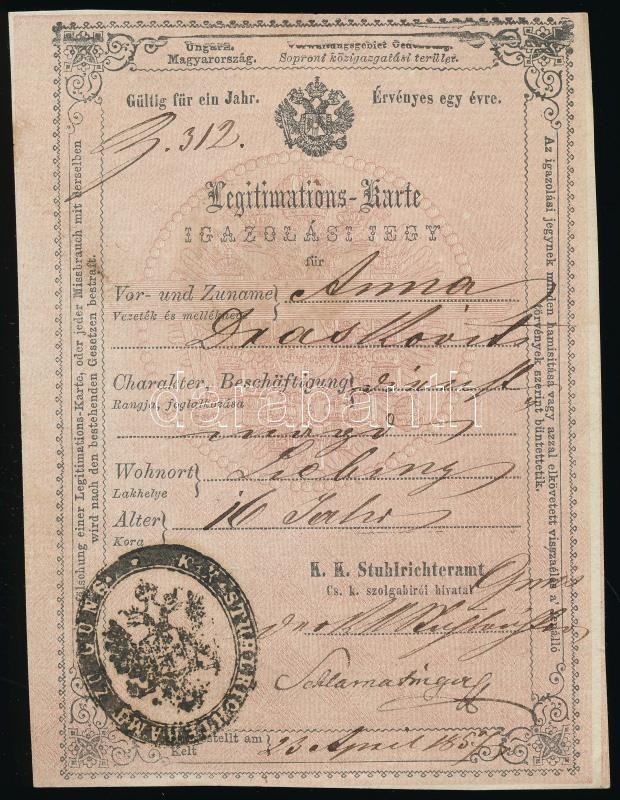 Ungarn. Verwaltungsgebiet Oedenburg.
Magyarország. Soproni közigazgatási terület.
Gültig für ein Jahr. Érvényes egy évre.
Z. 312.
Legitimations-Karte
IGAZOLÁSI JEGY
für
Vor- und Zuname Anna
Vezeték és mellékneve
Draskovits
Charakter, Beschäftigung Dienst
Rangja, foglalkozása
magd
Wohnort Liebing
Lakhelye
Alter 16 Jahr
Kora
K. K. Stuhlrichteramt Güns
Cs. k. szolgabirói hivatal
Ausgestellt am 23 April 857
Kelt
Verfälschung einer Legitimations-Karte, oder jeder Missbrauch mit derselben
wird nach den bestehenden Gesetzen bestraft.
Az igazolási jegynek minden hamisitása vagy azzal elkövetett viszgaélés a fenálló
törvények szerint büntettetik.
K. K. STUHLRICHTERAMT ZU GÜNS.
darabanth